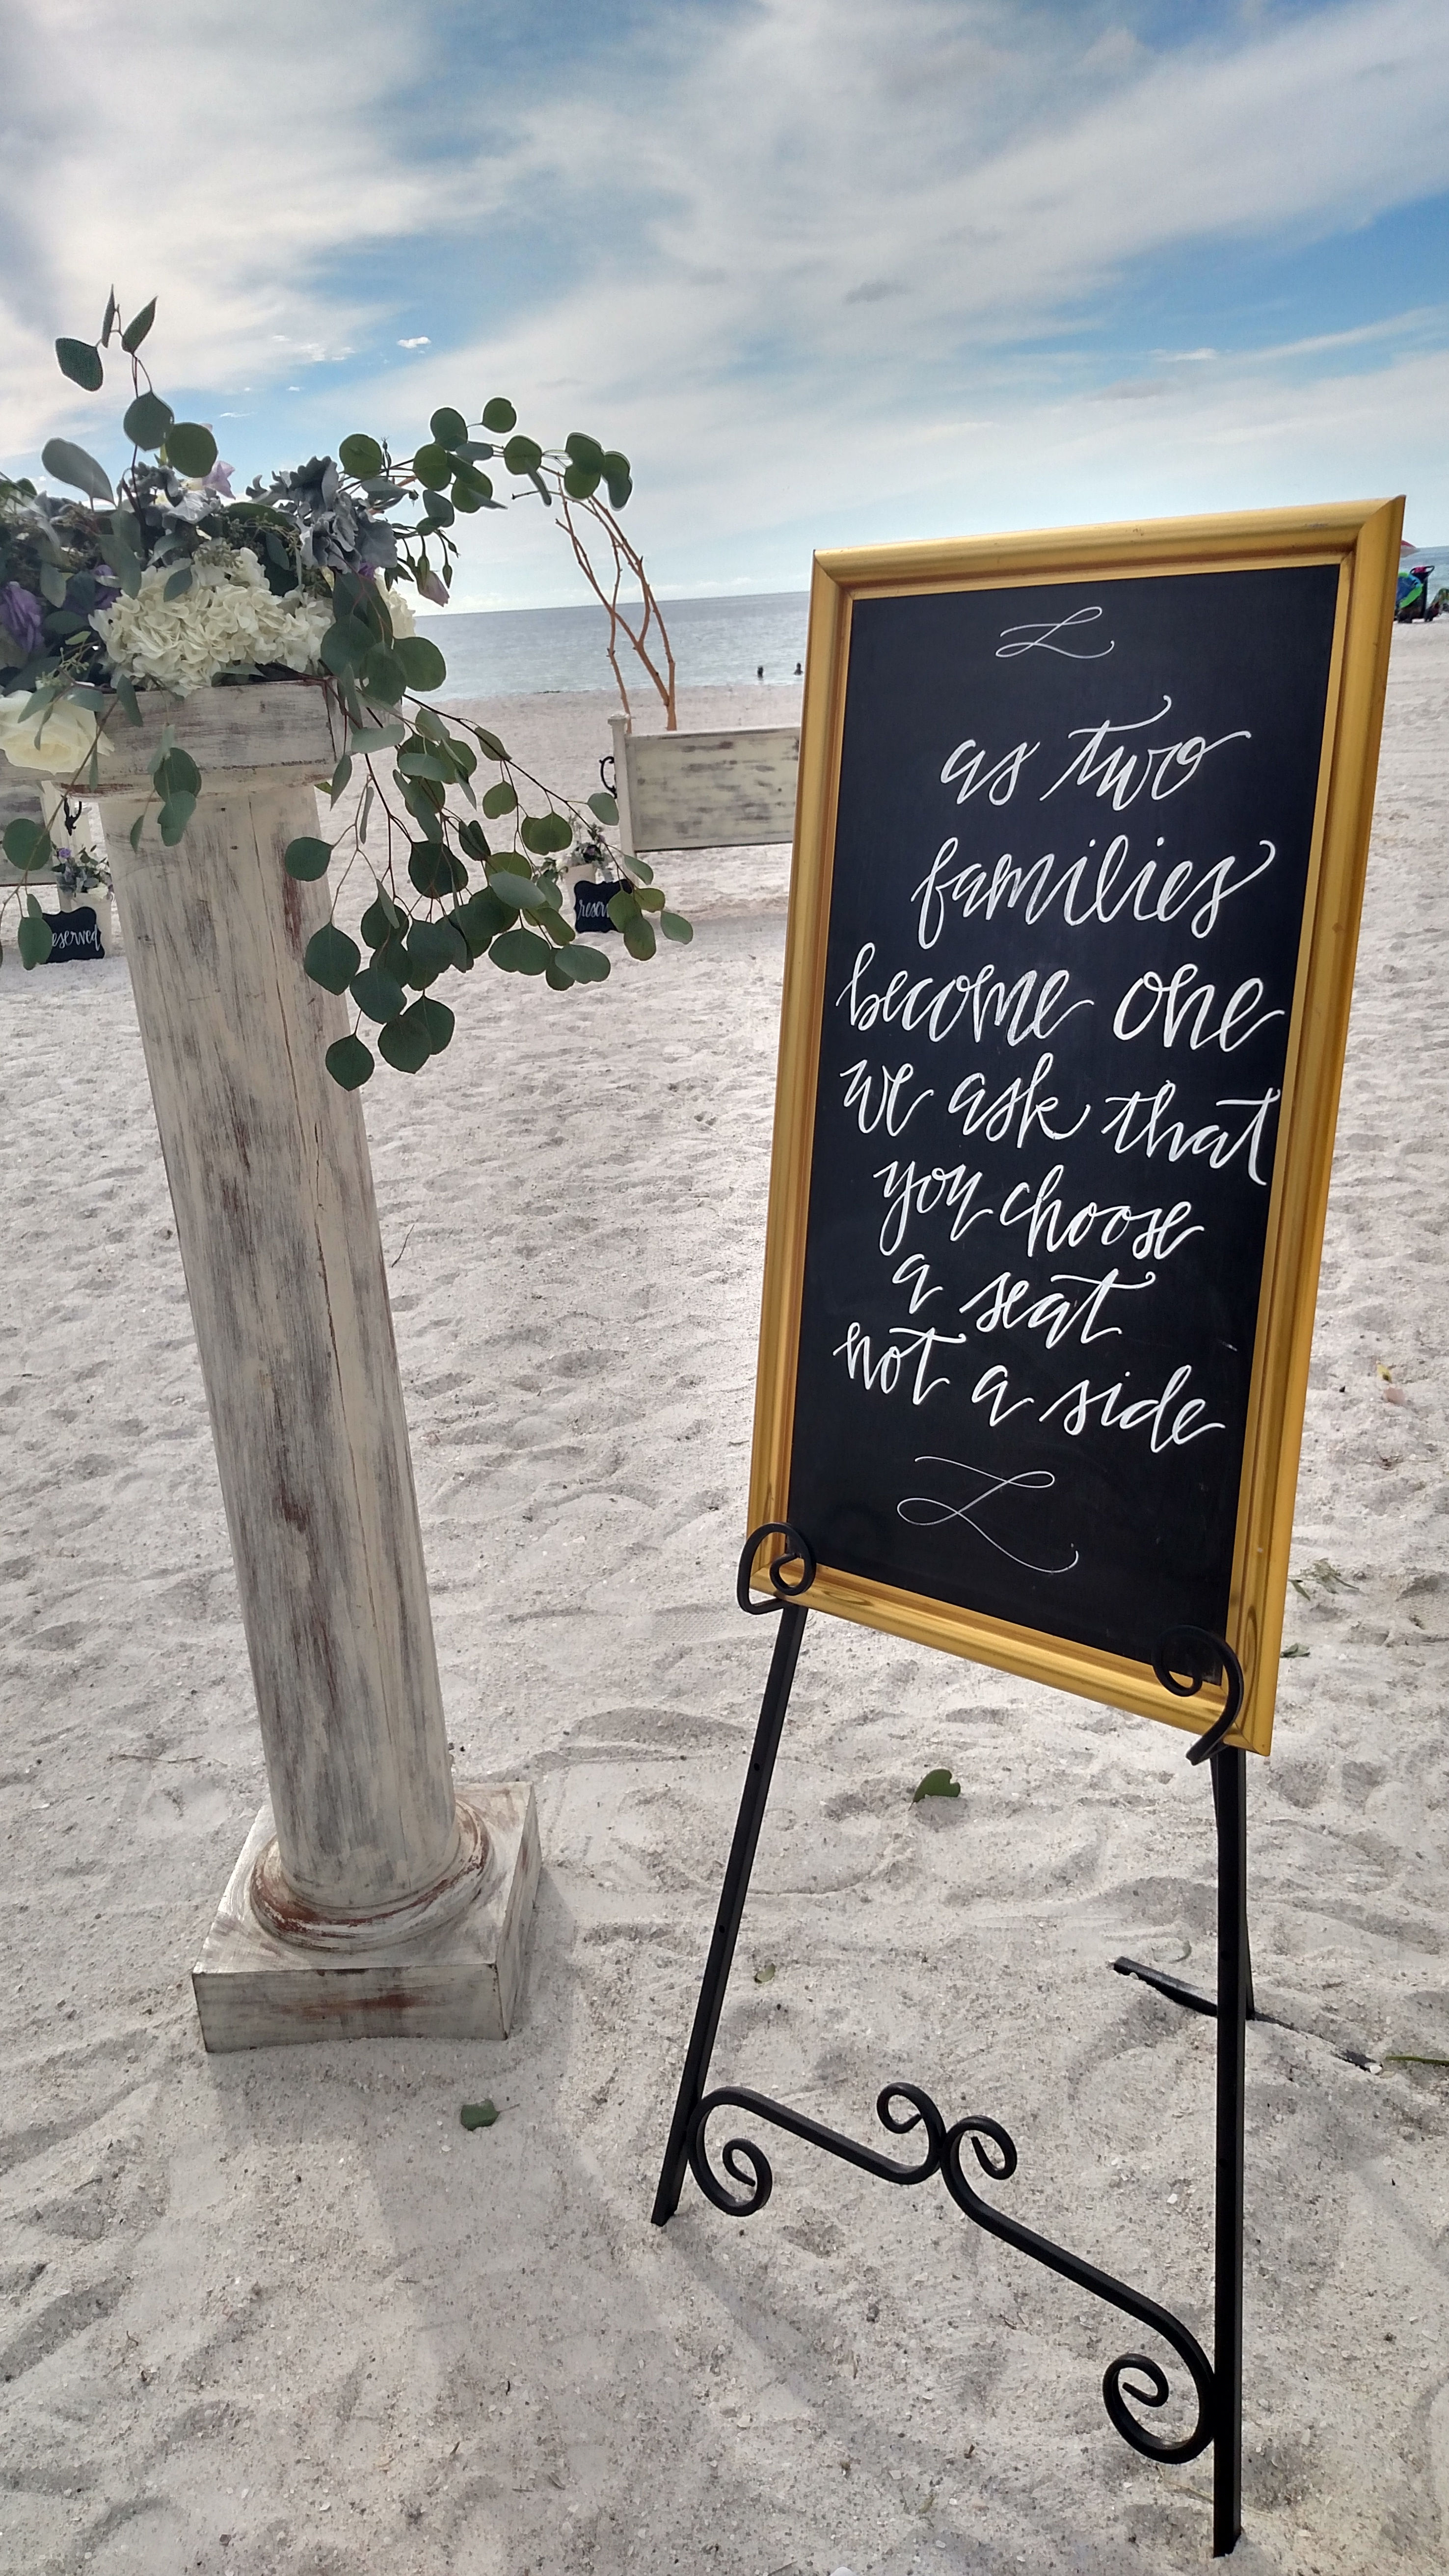 as two
families
become one
we ask that
you choose
a seat
not a side